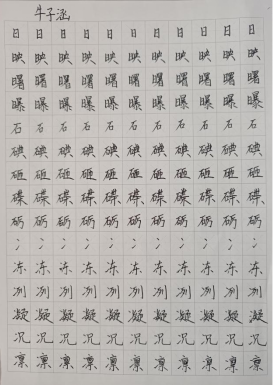 牛子涵
日 日 日 日 日 日 日 日 日 日 日
映 映 映 映 映 映 映 映 映 映 映
曙 曙 曙 曙 曙 曙 曙 曙 曙 曙 曙
曝 曝 曝 曝 曝 曝 曝 曝 曝 曝 曝
石 石 石 石 石 石 石 石 石 石 石
碘 碘 碘 碘 碘 碘 碘 碘 碘 碘 碘
砸 砸 砸 砸 砸 砸 砸 砸 砸 砸 砸
碟 碟 碟 碟 碟 碟 碟 碟 碟 碟 碟
砺 砺 砺 砺 砺 砺 砺 砺 砺 砺 砺
冫 冫 冫 冫 冫 冫 冫 冫 冫 冫 冫
冻 冻 冻 冻 冻 冻 冻 冻 冻 冻 冻
冽 冽 冽 冽 冽 冽 冽 冽 冽 冽 冽
凝 凝 凝 凝 凝 凝 凝 凝 凝 凝 凝
况 况 况 况 况 况 况 况 况 况 况
凛 凛 凛 凛 凛 凛 凛 凛 凛 凛 凛